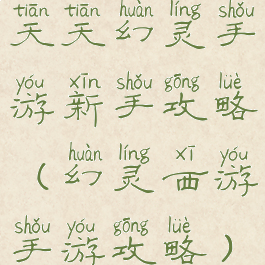 tiān tiān huàn líng shǒu
天天幻灵手
yóu xīn shǒu gōng lüè
游新手攻略
huàn líng xī yóu
（幻灵西游
shǒu yóu gōng lüè
手游攻略）